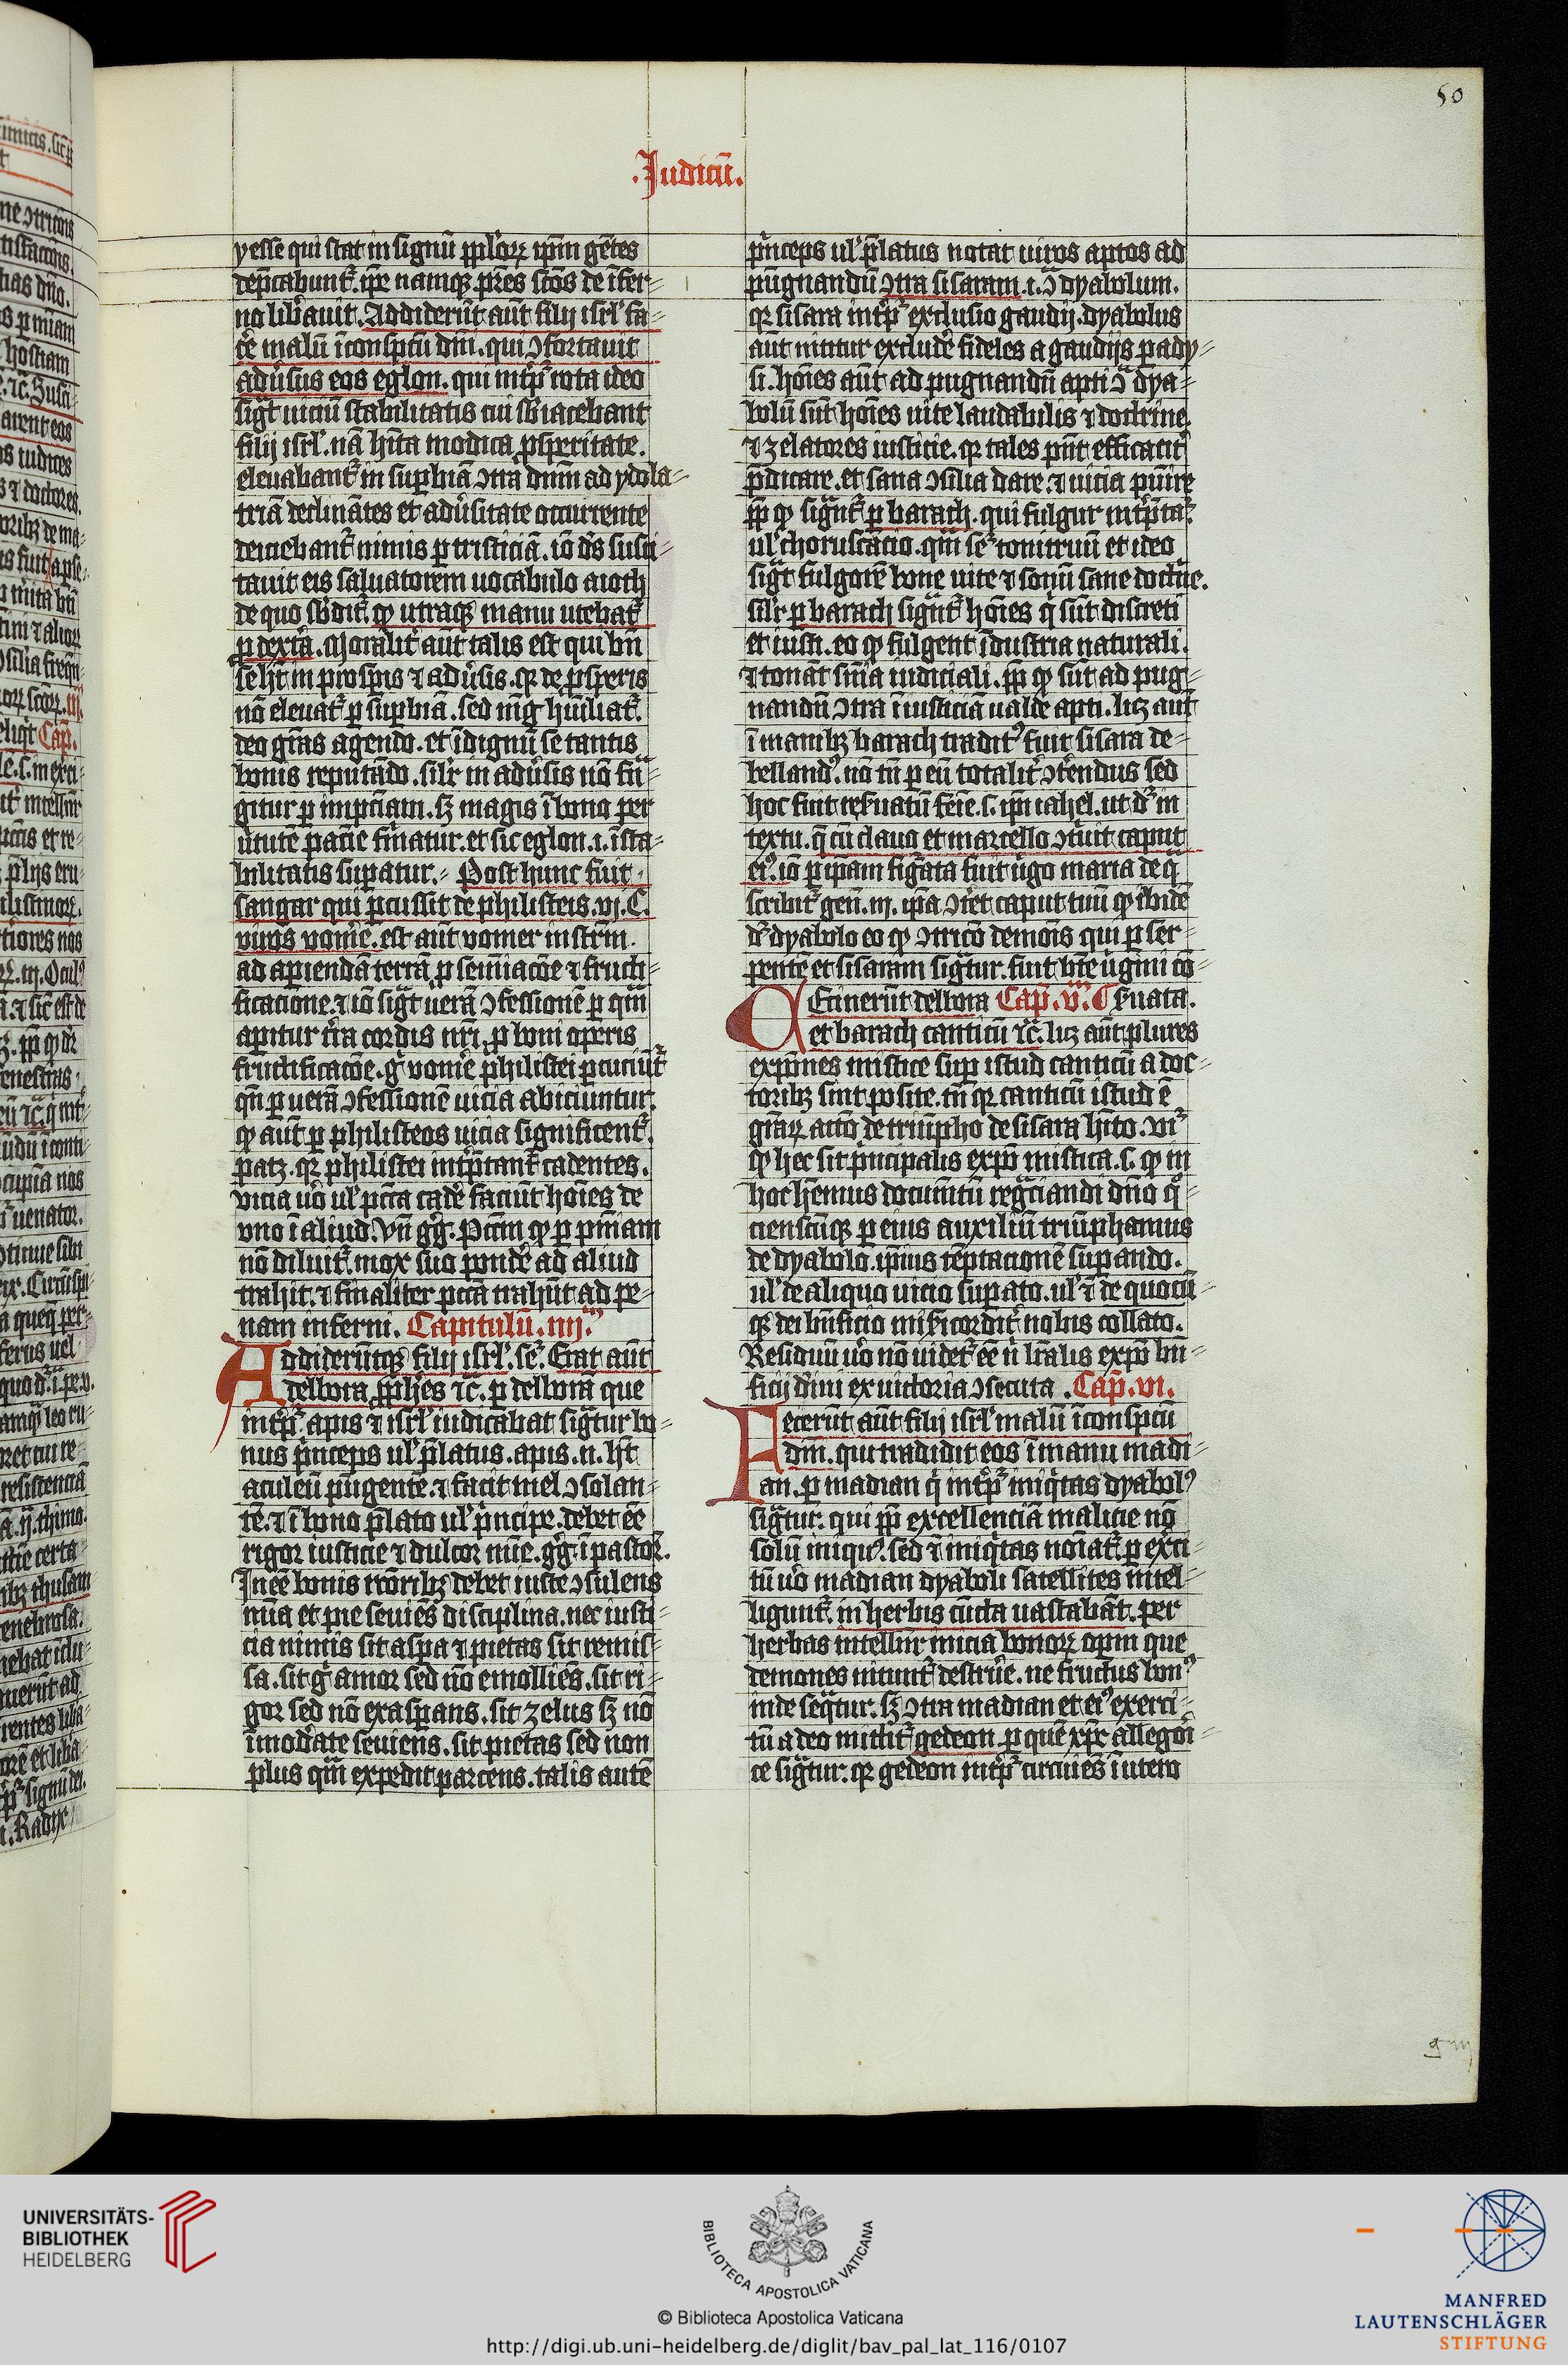 50
.Judicū.
yesse qui stat in signū pplor̄ꝝ ip̄m gētes
dep̄cabunt᷑. ip̄e namqꝫ pr̄es sc̄os de īfer⸗
no lib̾auit. Addiderūt aūt filij isrl̾ fa⸗
c̾e malū īconspc̄u dn̄i. qui ↄfortauit
adu̾sus eos eglon. qui int̾p᷑ rota ideo
sig̾t uiciū stabilitatis cui sb̾iacebant
filij isrl̾. nā hīta modica ꝓsꝑitate.
eleuabant᷑ in suꝑbiā ↄtra dnm̄ ad ydola⸗
triā declinātes et adu̾sitate occurrente
deiciebant᷑ nimis ꝑ tristiciā. iō ds̄ susci⸗
tauit eis saluatorem uocabulo aioth
de quo sb̾dit᷑. qꝫ utraqꝫ manu utebat᷑
ꝓ dext̾a. Moralit̾ aūt talis est qui bn̄
se ht̄ in prosꝑis ⁊ adu̾sis. qꝛ de ꝓsꝑis
nō eleuat᷑ ꝑ suꝑbiā. sed mg̾ hūiliat᷑.
deo gr̄as agendo. et īdignū se tantis
bonis reputādo. silr̾ in adu̾sis nō frā⸗
gitur ꝑ impc̄iam. sꝫ magis ībono per
u̾tutē pacie fir̾matur. et sic eglon .i. īsta⸗
bilitatis suꝑatur. Post hunc fuit
sangar qui ꝑcussit de philisteis .vj. C.
viros vomēe. est aūt vomer instrm̄.
ad aꝑiendā terrā ꝓ semīacōe ⁊ fructi⸗
ficatione. ⁊ iō sig̾t uerā ↄfessionē ꝑ qm̄
aꝑitur tr̄a cordis nr̄i ꝓ boni operis
fructificacōe. g̾ vomēe philistei ꝑcuciūt᷑
qn̄ ꝑ uerā ↄfessionē uicia abiciuntur.
qꝫ aūt ꝑ philisteos uicia significent᷑.
patꝫ. qꝛ philistei int̾p̄tant᷑ cadentes.
vicia uo̾ ul̾ pcc̄a cade̾ faciūt hoīes de
vno ī aliud. Vn̄ gg̾. Pcc̄m qꝫ ꝑ pniam
nō diluit᷑. mox suo ponde̾ ad aliud
trahit. ⁊ finaliter pcc̄a trahūt ad pe⸗
nam inferni. Capitulū .iiij.
Addiderūtqꝫ filij isrl̾. se᷑. Erat aūt
delbora ꝓph̾es ⁊c̄. ꝑ delborā que
int̾p᷑ apis ⁊ isrl̾ iudicabat sig̾tur bo⸗
nus p̾nceps ul̾ p̄latus. apis .n. ht̄
aculeū pūgentē. ⁊ facit mel ↄsolan⸗
tē. ⁊ ī bono p̄lato ul̾ p̾ncipe. debet ēe
rigor iusticie ⁊ dulcor mie. gg̾. ī pastor̾.
Ineē bonis rectoribꝫ debet iuste ↄsulens
mia et pie seuiēs disciplina. nec iusti⸗
cia nimis sit asꝑa ⁊ pietas sit remis⸗
sa. sit g̾ amor sed nō emolliēs. sit ri⸗
gor sed nō exasꝑans. sit zelus sꝫ nō
īmodate seuiens. sit pietas sed non
plus qm̄ expedit parcens. talis autē
p̾nceps ul̾ p̄latus notat uiros aptos ad
pūgnandū ↄtra sisaram .i. ↄ dyabolum.
qꝛ sisara int̾p᷑ exclusio gaudij. dyabolus
aūt nitit᷑ excludē fideles a gaudijs pady⸗
si. hoīes aūt ad pugnandū apti ↄ dya⸗
bolū sūt hoīes uite laudabilis ⁊ doctrine.
⁊ zelatores iusticie. qꝛ tales pn̄t efficacit̾
p̄dicare. et sana ↄsilia dare. ⁊ uicia pūire
ꝓp qꝫ sig̾nt᷑ ꝑ barach. qui fulgur int̾p̄ta᷑
ul̾ choruscācio. qm̄ se᷑ tonitruū et ideo
sig̾t fulgorē bone uite ⁊ sonū sane doctine.
silr̾ ꝑ barach sig̾nt᷑ hoīes q̾ sūt discreti
et iusti. eo qꝫ fulgent īdustria naturali.
⁊ tonāt sn̄ia iudiciali. ꝓp qꝫ sūt ad pug⸗
nandū ↄtra īiusticiā ualde apti. lꝫ aūt
ī manibꝫ barach tradit᷒ fuit sisara de⸗
belland᷒. nō tn̄ ꝑ eū totalit̾ ↄterendus sed
hoc fuit resuatū feīe .s. ipi iahel. ut d᷑ in
textu. q̄ cū clauo et marcello ↄtiuit caput
ei᷒. iō ꝑ ip̄am fig̾ata fuit u̾go maria de q̄
scribit᷑ gen̄. iij. ipa ↄtet caput tuū qꝫ ibidē
d᷑ dyabolo eo qꝫ ↄtricō demoīs qui ꝑ ser⸗
pentē et sisaram sig̾tur. fuit bt̄e u̾gini co⸗
Cecinerūt delbora Cap̄ .v. C suata.
et barach canticū ⁊c̄. lꝫ aūt plures
exp̄oines mistice suꝑ istud canticū a doc⸗
toribꝫ sint posite. tn̄ qꝛ canticū istud ē
gr̄aꝝ actō de triūpho de sisara hīto. vi᷑
qꝫ hec sit p̾ncipalis expō mistica .s. qꝫ in
hoc hēmus documtū reg̾ciandi dn̄o q̊⸗
ciensctūqꝫ ꝑ eius auxiliū triūphamus
de dyabolo. ip̄ius tēptacionē suꝑando.
ul̾ de aliquo uicio suꝑato. ul̾ ⁊ de quocū⸗
qꝫ dei bn̄ficio misi̾cordit̾ nobis collato.
Residuū uo̾ nō uidet᷑ ēe n̾ lr̄alis expō bn̄⸗
ficij diui ex uictoria ↄsecuta. Cap̄ .vi.
Fecerūt aūt filij isrl̾ malū īconspcū
dn̄i. qui tradidit eos ī manu madi⸗
an. ꝑ madian q̾ int̾p᷑ iniq̾tas dyabol᷒
sig̾tur. qui ꝓp excellenciā malicie nō
solū iniqu᷒. sed ⁊ iniq̾tas noīat᷑. ꝑ ex̾ci⸗
tū uo̾ madian dyaboli satellites intel⸗
ligunt᷑. in herbis cūcta uastabāt. per
herbas intellūr inicia bonoꝝ opm̄ que
demones nitunt᷑ destru̾e. ne fructus bon᷒
inde seq̾tur. sꝫ ↄtra madian et ei᷒ exerci⸗
tū a deo mittit᷑ gedeon ꝑ quē xp̄c allegori⸗
ce sig̾tur. qꝛ gedeon int̾p᷑ circuiēs ī utero
g iij
UNIVERSITÄTS-
BIBLIOTHEK
HEIDELBERG
BIBLIOTECA APOSTOLICA VATICANA
© Biblioteca Apostolica Vaticana
http://digi.ub.uni-heidelberg.de/diglit/bav_pal_lat_116/0107
MANFRED
LAUTENSCHLÄGER
STIFTUNG